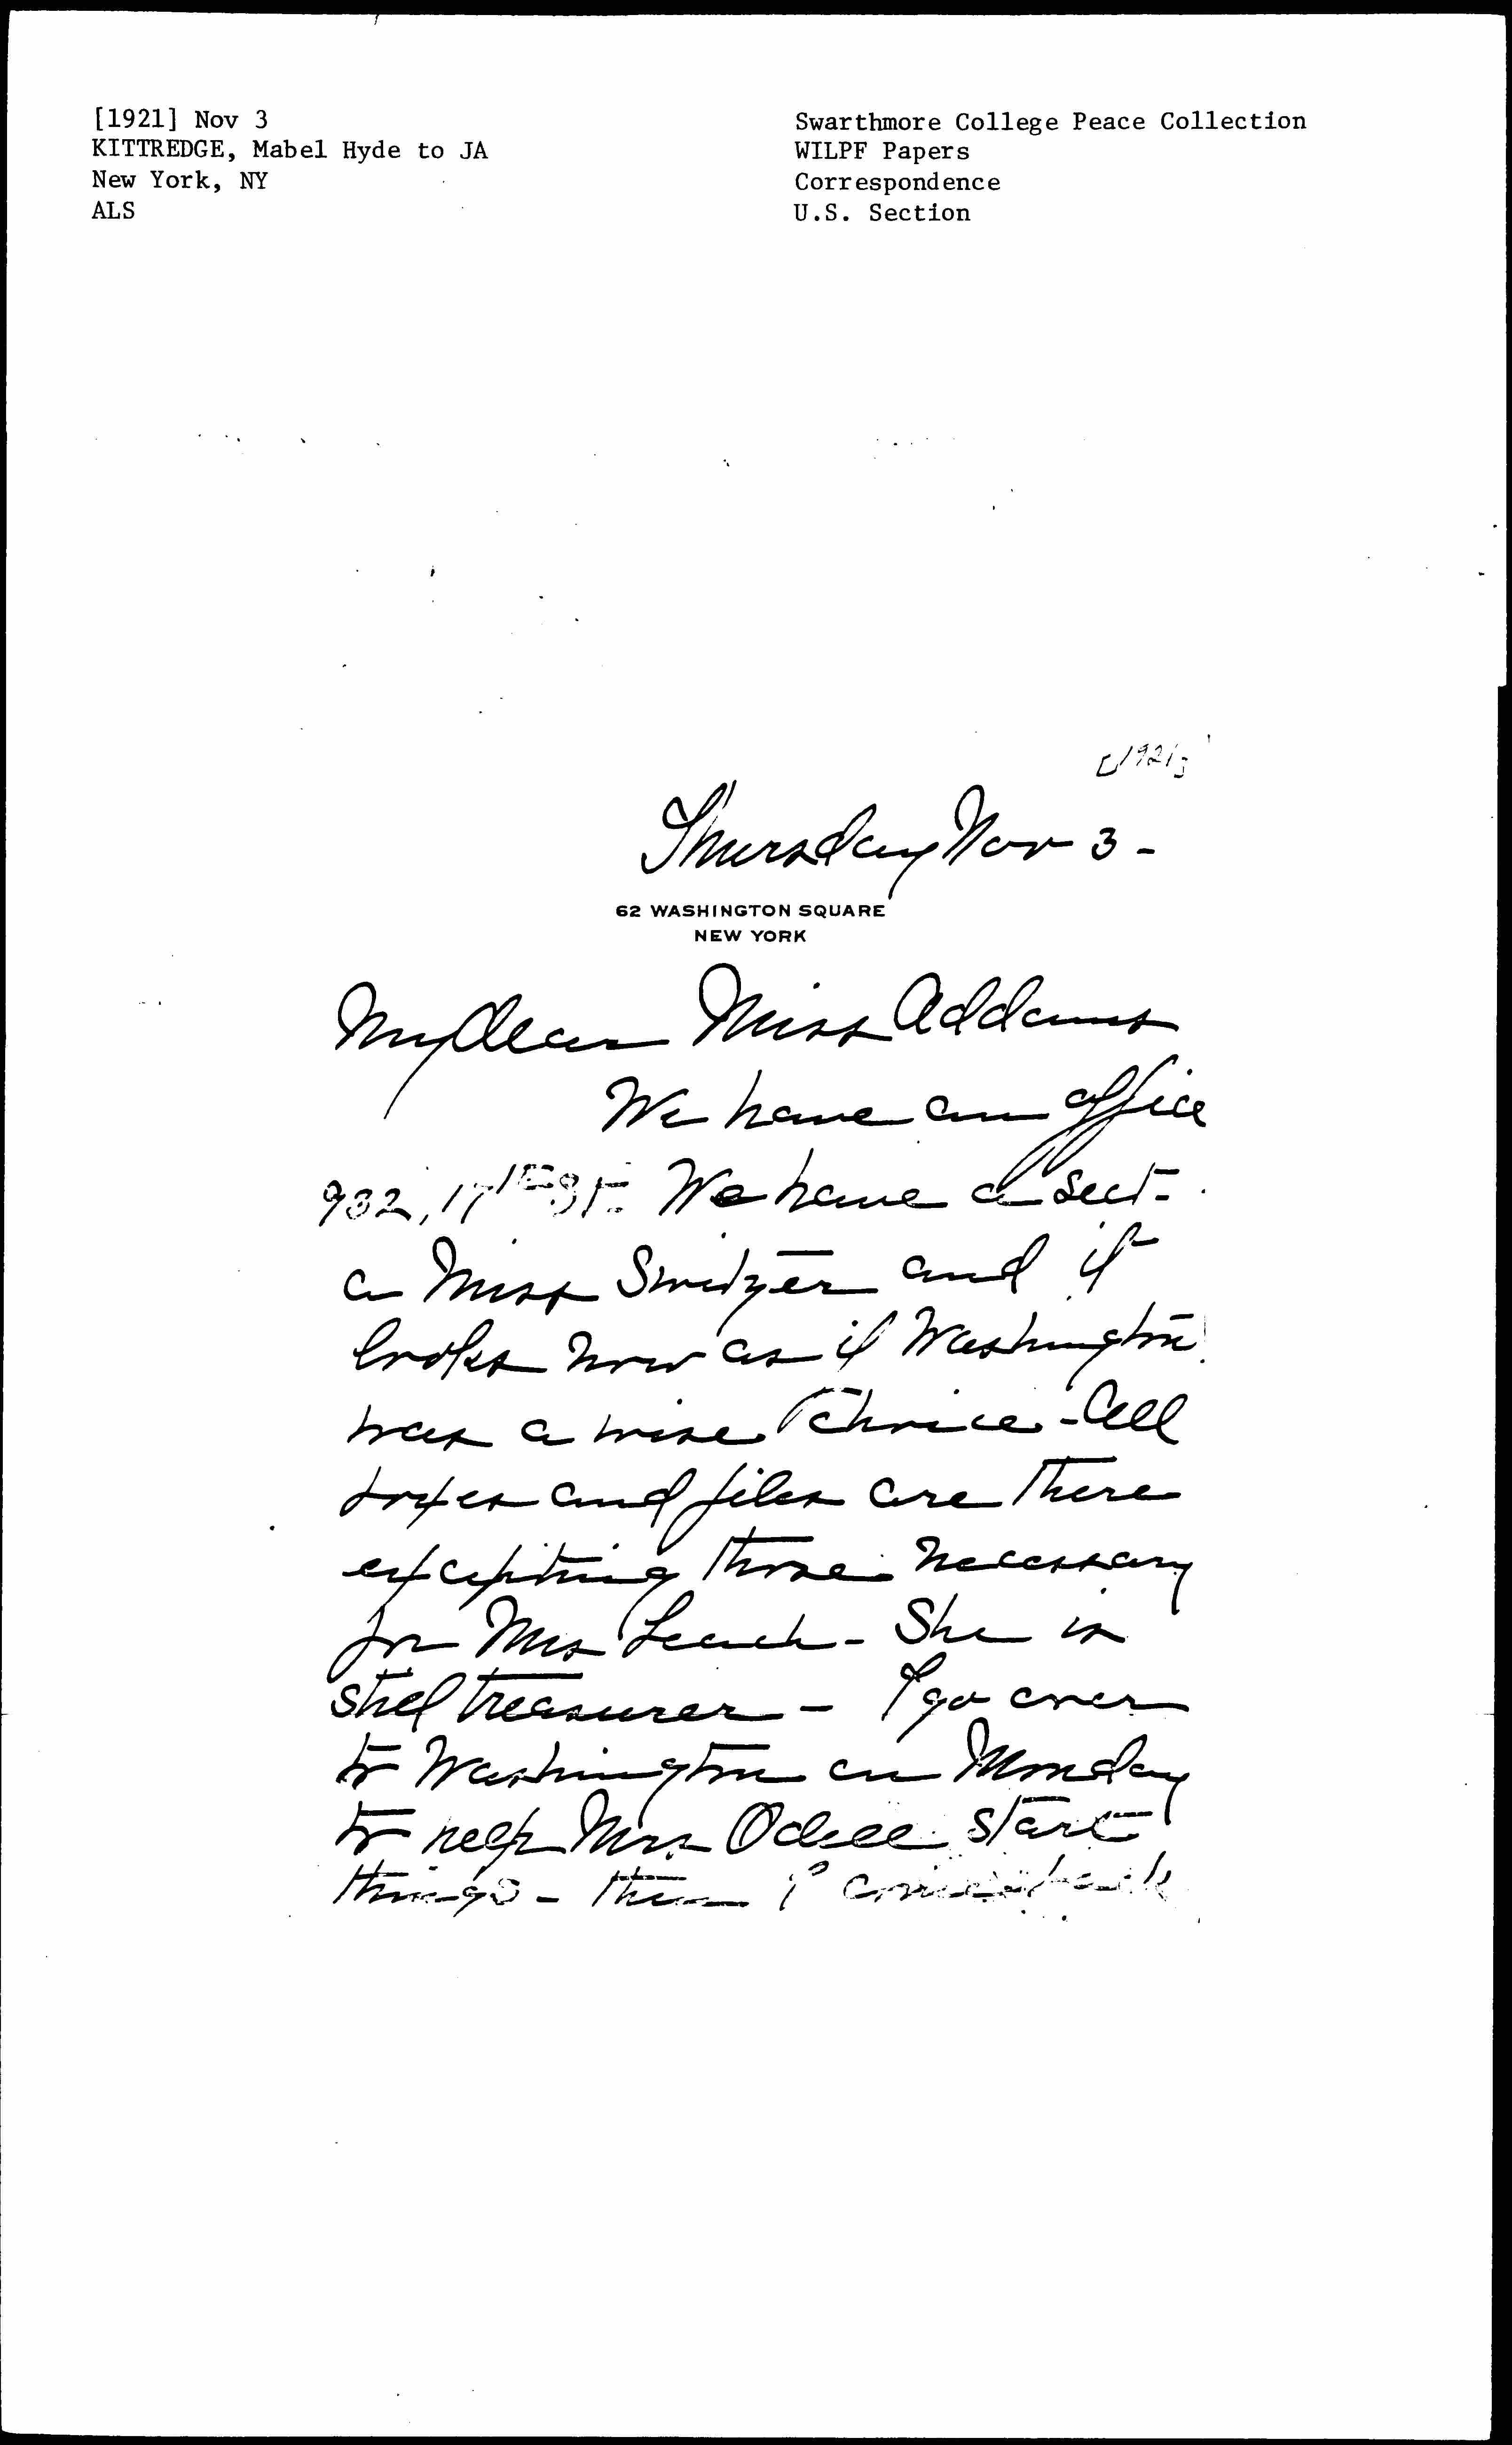 [1921] Nov 3
KITTREDGE, Mabel Hyde to JA
New York, NY
ALS
Swarthmore College Peace Collection
WILPF Papers
Correspondence
U.S. Section
[1921]
Thursday Nov 3 -
62 WASHINGTON SQUARE
NEW YORK
My dear Miss Addams
We have an office
932, 17th St. We have a sect-
a Miss and it
looks now as if Washington
was a wise choice - All
boxes and files are there
excepting those necessary
for Mrs Leach - She is
still treasurer - I go over
to Washington on Monday
to help Mrs Odell start
things - then I come back